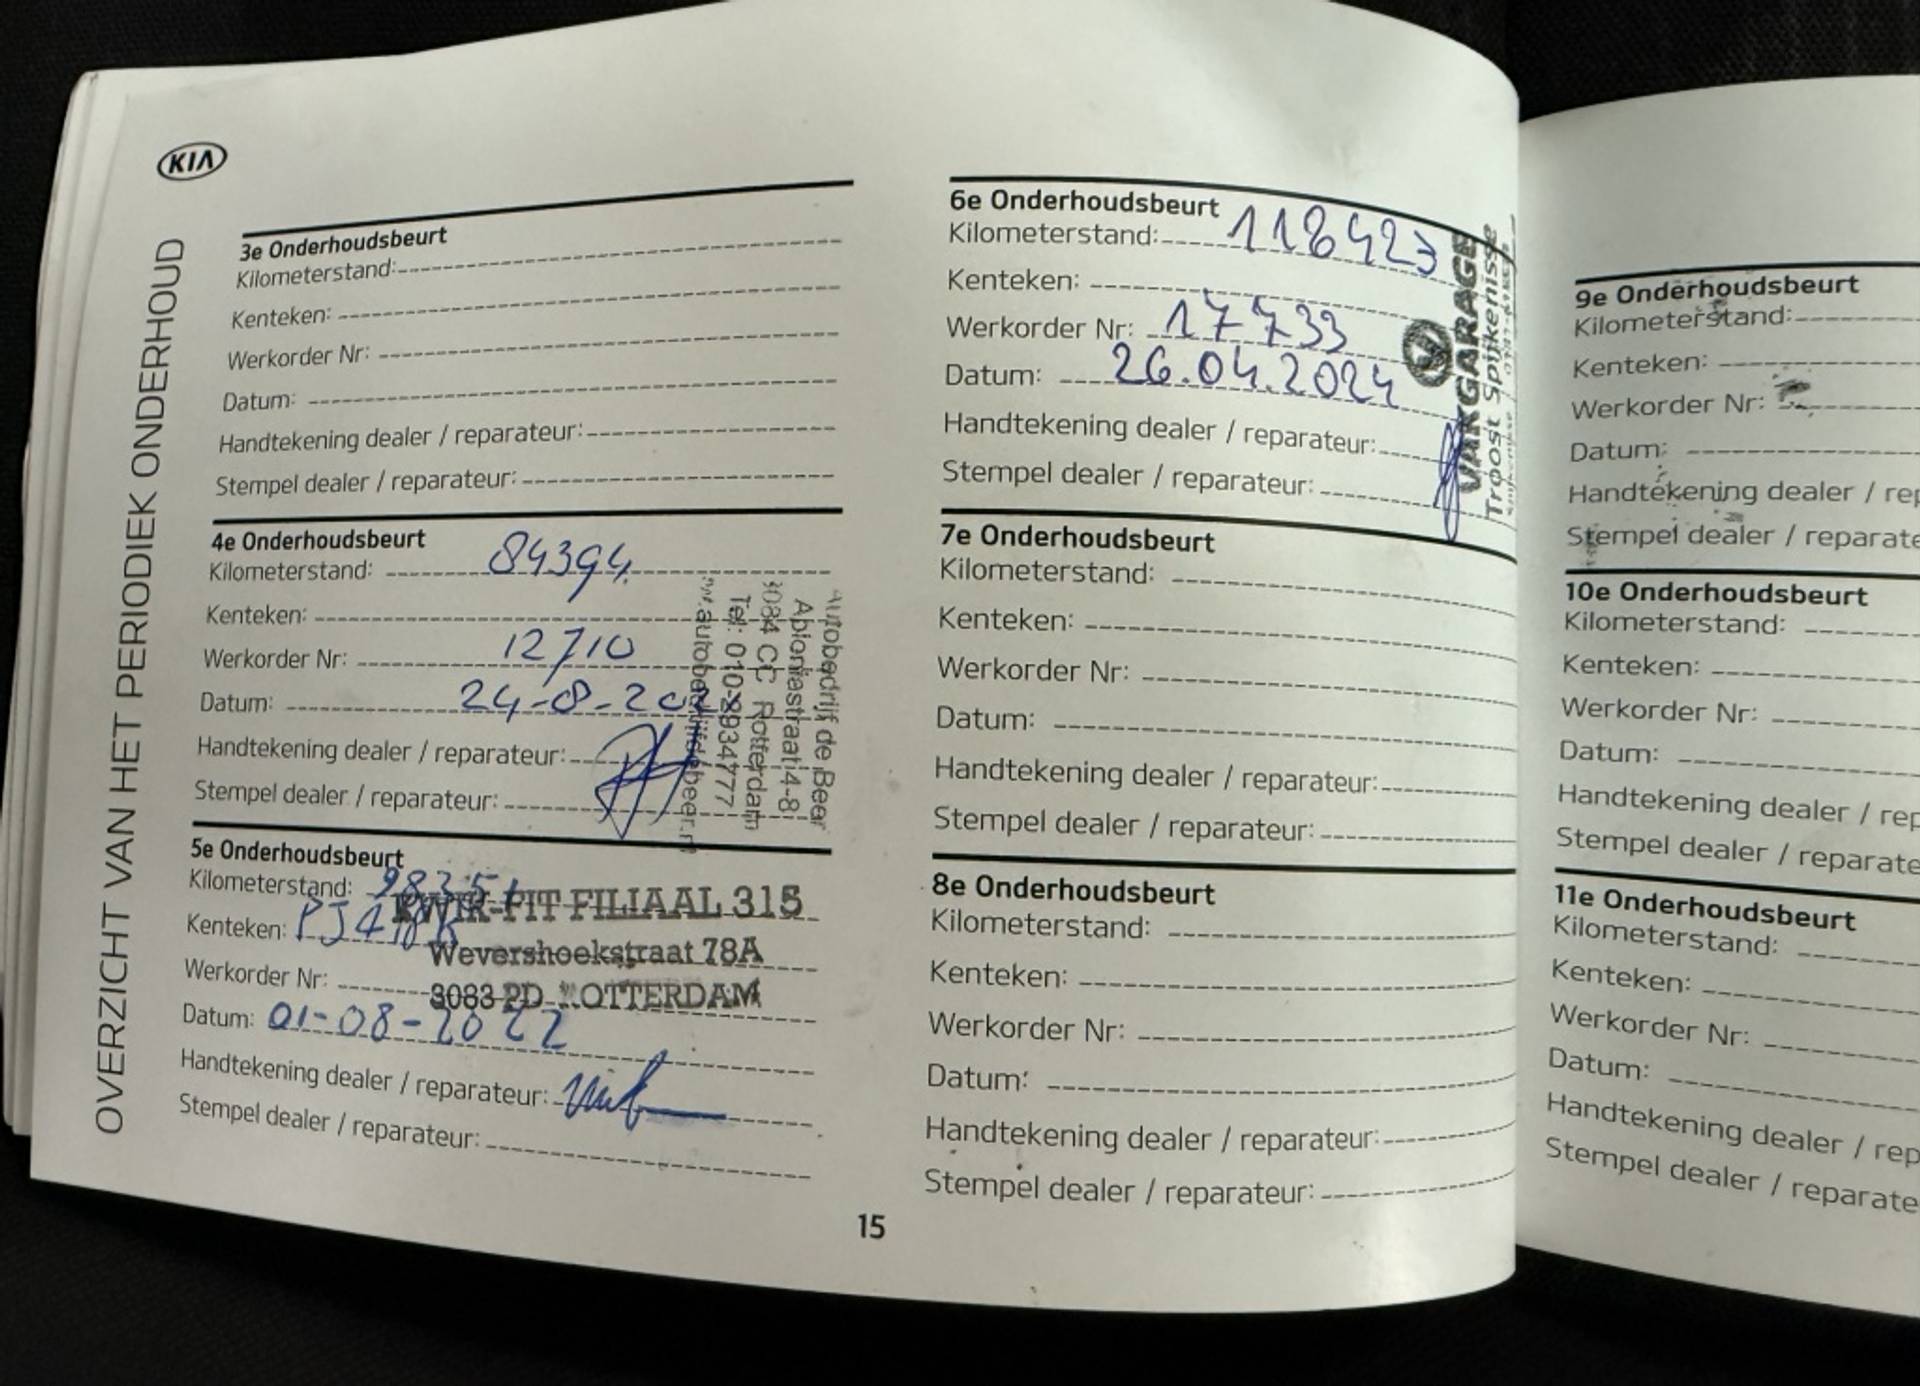 KIA
OVERZICHT VAN HET PERIODIEK ONDERHOUD
3e Onderhoudsbeurt
Kilometerstand:
Kenteken:
Werkorder Nr:
Datum:
Handtekening dealer / reparateur:
Stempel dealer / reparateur:
4e Onderhoudsbeurt
Kilometerstand: 84394
Kenteken:
Werkorder Nr: 12710
Datum: 24-8-202
Handtekening dealer / reparateur:
Stempel dealer / reparateur:
Autobedrijf de Beer
3084 CC Rotterdam
Tel: 010-2934777
5e Onderhoudsbeurt
Kilometerstand:
Kenteken:
Werkorder Nr:
Datum: 01-08-2022
Handtekening dealer / reparateur:
Stempel dealer / reparateur:
KWIK-FIT FILIAAL 315
Wevershoekstraat 78A
3083 PD ROTTERDAM
6e Onderhoudsbeurt
Kilometerstand: 118423
Kenteken:
Werkorder Nr: 17733
Datum: 26.04.2024
Handtekening dealer / reparateur:
Stempel dealer / reparateur:
VAKGARAGE
Troost Spijkenisse
7e Onderhoudsbeurt
Kilometerstand:
Kenteken:
Werkorder Nr:
Datum:
Handtekening dealer / reparateur:
Stempel dealer / reparateur:
8e Onderhoudsbeurt
Kilometerstand:
Kenteken:
Werkorder Nr:
Datum:
Handtekening dealer / reparateur:
Stempel dealer / reparateur:
15
9e Onderhoudsbeurt
Kilometerstand:
Kenteken:
Werkorder Nr:
Datum:
Handtekening dealer / rep
Stempel dealer / reparate
10e Onderhoudsbeurt
Kilometerstand:
Kenteken:
Werkorder Nr:
Datum:
Handtekening dealer / rep
Stempel dealer / reparate
11e Onderhoudsbeurt
Kilometerstand:
Kenteken:
Werkorder Nr:
Datum:
Handtekening dealer / rep
Stempel dealer / reparate